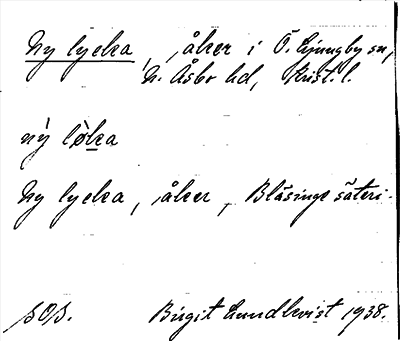 Ny lycka, åker i Ö. Ljungby sn,
N. Åsbo hd, Krist. l.
nỳ lø̀ka
Ny lycka, åker, Bläsinge säteri.
SOS. Birgit Lundkvist 1938.